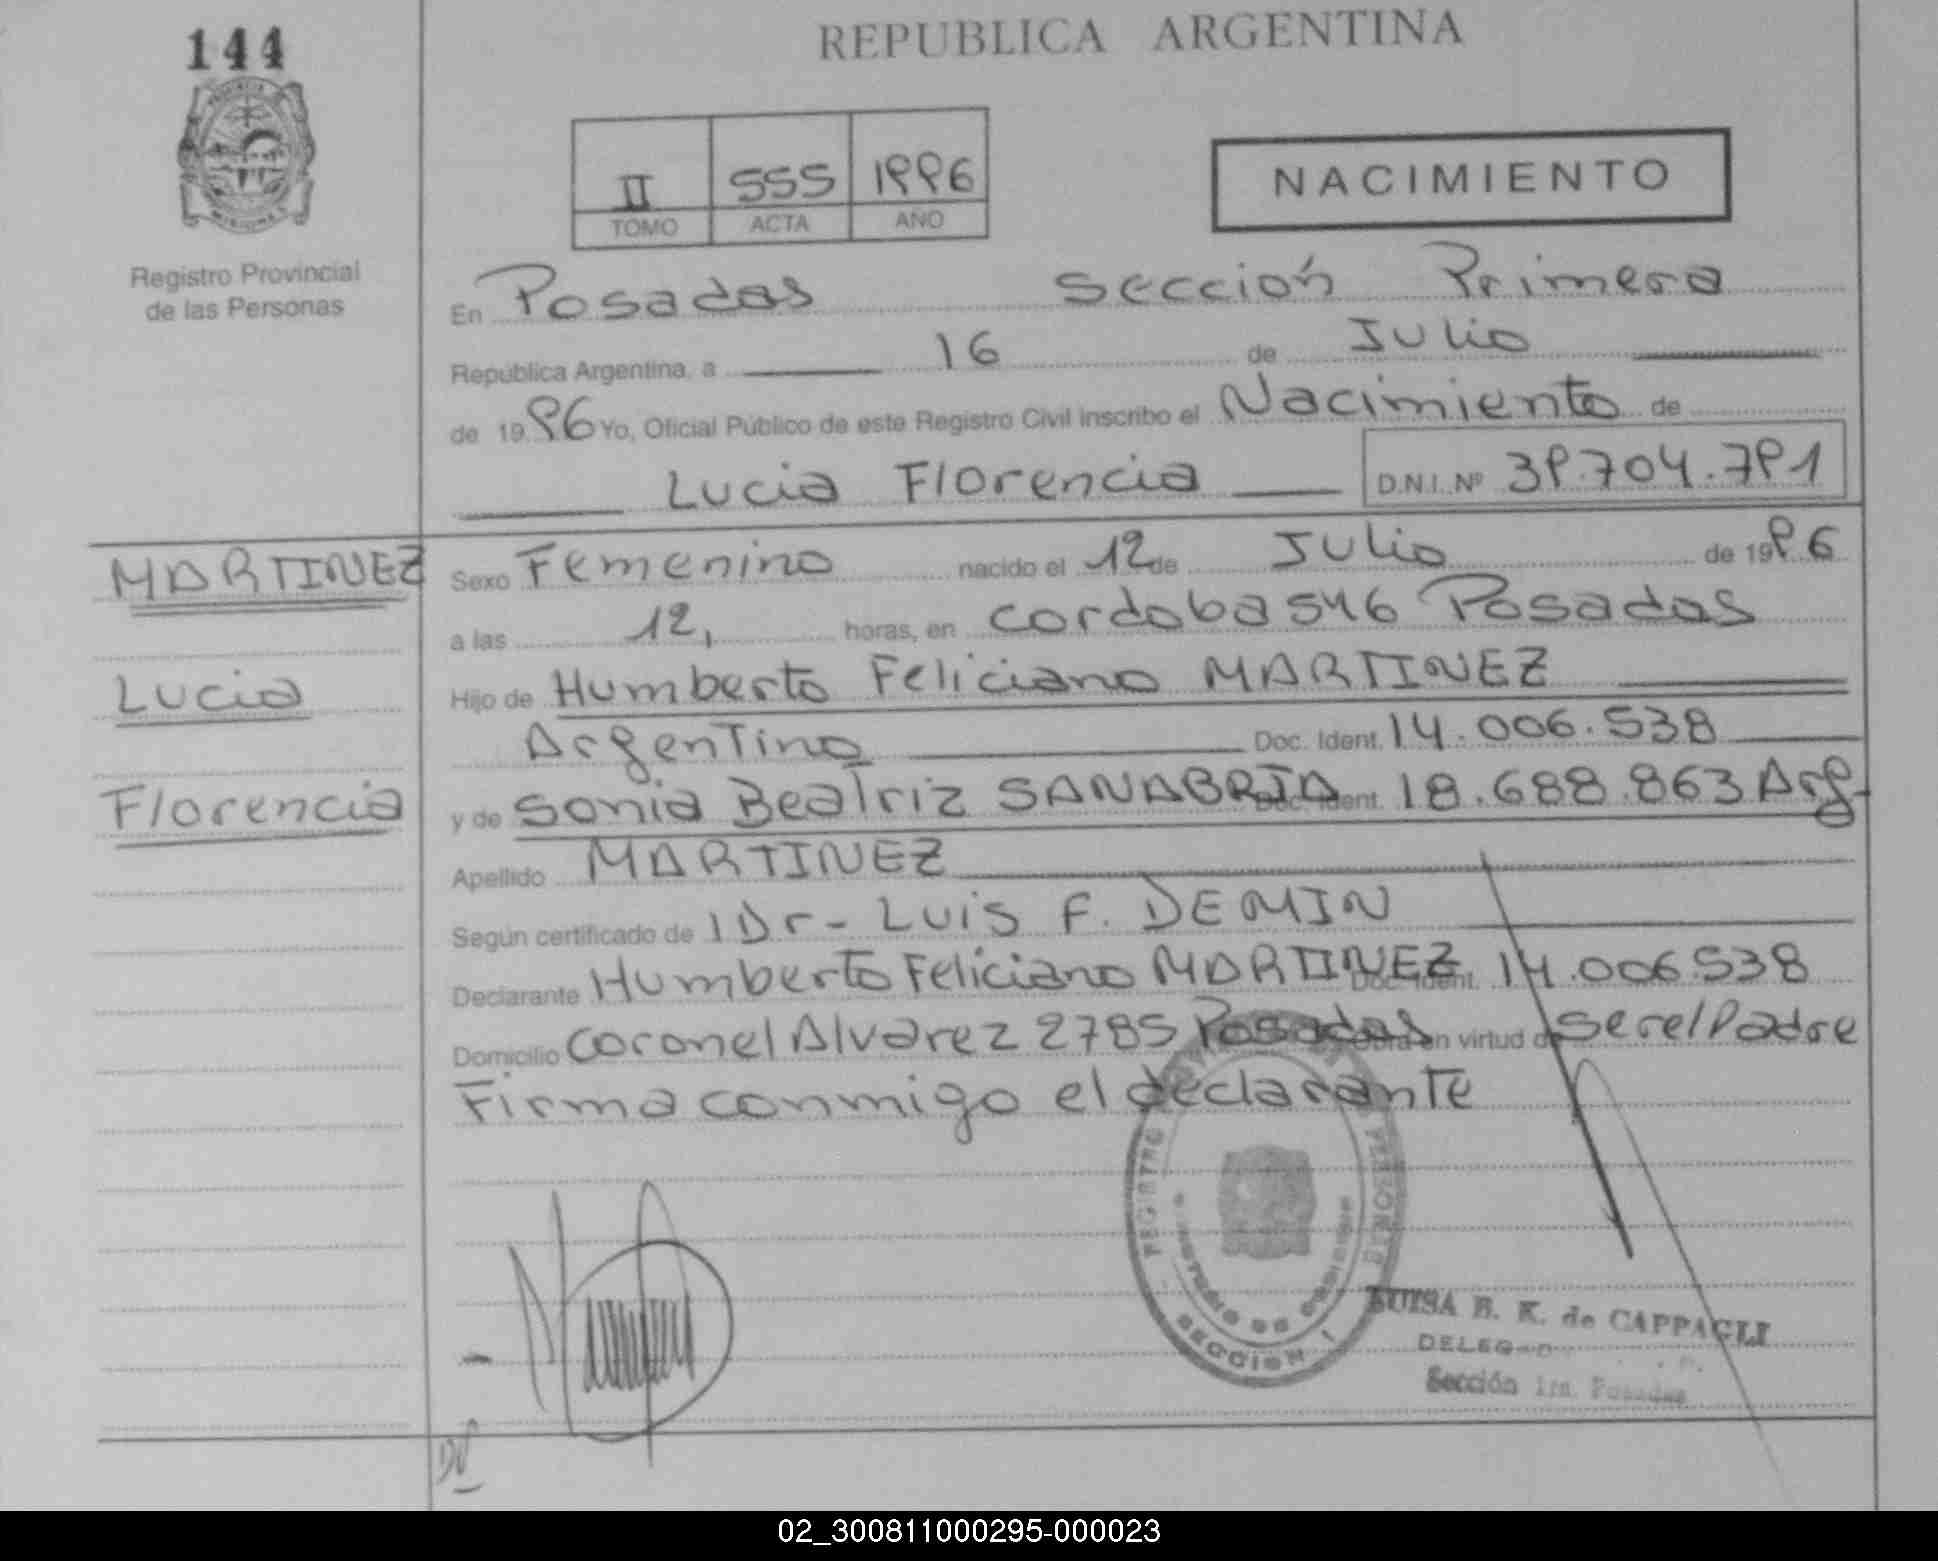 144
REPUBLICA ARGENTINA
PROVINCIA
MISIONES
Registro Provincial
de las Personas
II 555 1996
TOMO ACTA AÑO
NACIMIENTO
En Posadas Sección Primera
República Argentina, a 16 de Julio
de 1996 Yo, Oficial Público de este Registro Civil inscribo el Nacimiento de
Lucia Florencia D.N.I. Nº 39.704.791
MARTINEZ
Lucia
Florencia
Sexo Femenino nacido el 12 de Julio de 1996
a las 12, horas, en cordoba 546 Posadas
Hijo de Humberto Feliciano MARTINEZ
Argentino Doc. Ident. 14.006.538
y de Sonia Beatriz SANABRIA Doc. Ident. 18.688.863 Arg.
Apellido MARTINEZ
Según certificado de l Dr- Luis F. DEMIN
Declarante Humberto Feliciano MARTINEZ Doc. Ident. 14.006.538
Domicilio Coronel Alvarez 2785 Posadas Obra en virtud de ser el Padre
Firma conmigo el declarante
REGISTRO DE LAS PERSONAS
SECCION 1
LUISA B. K. de CAPPAGLI
DELEGADA
Sección 1ra. Posadas
02_300811000295-000023